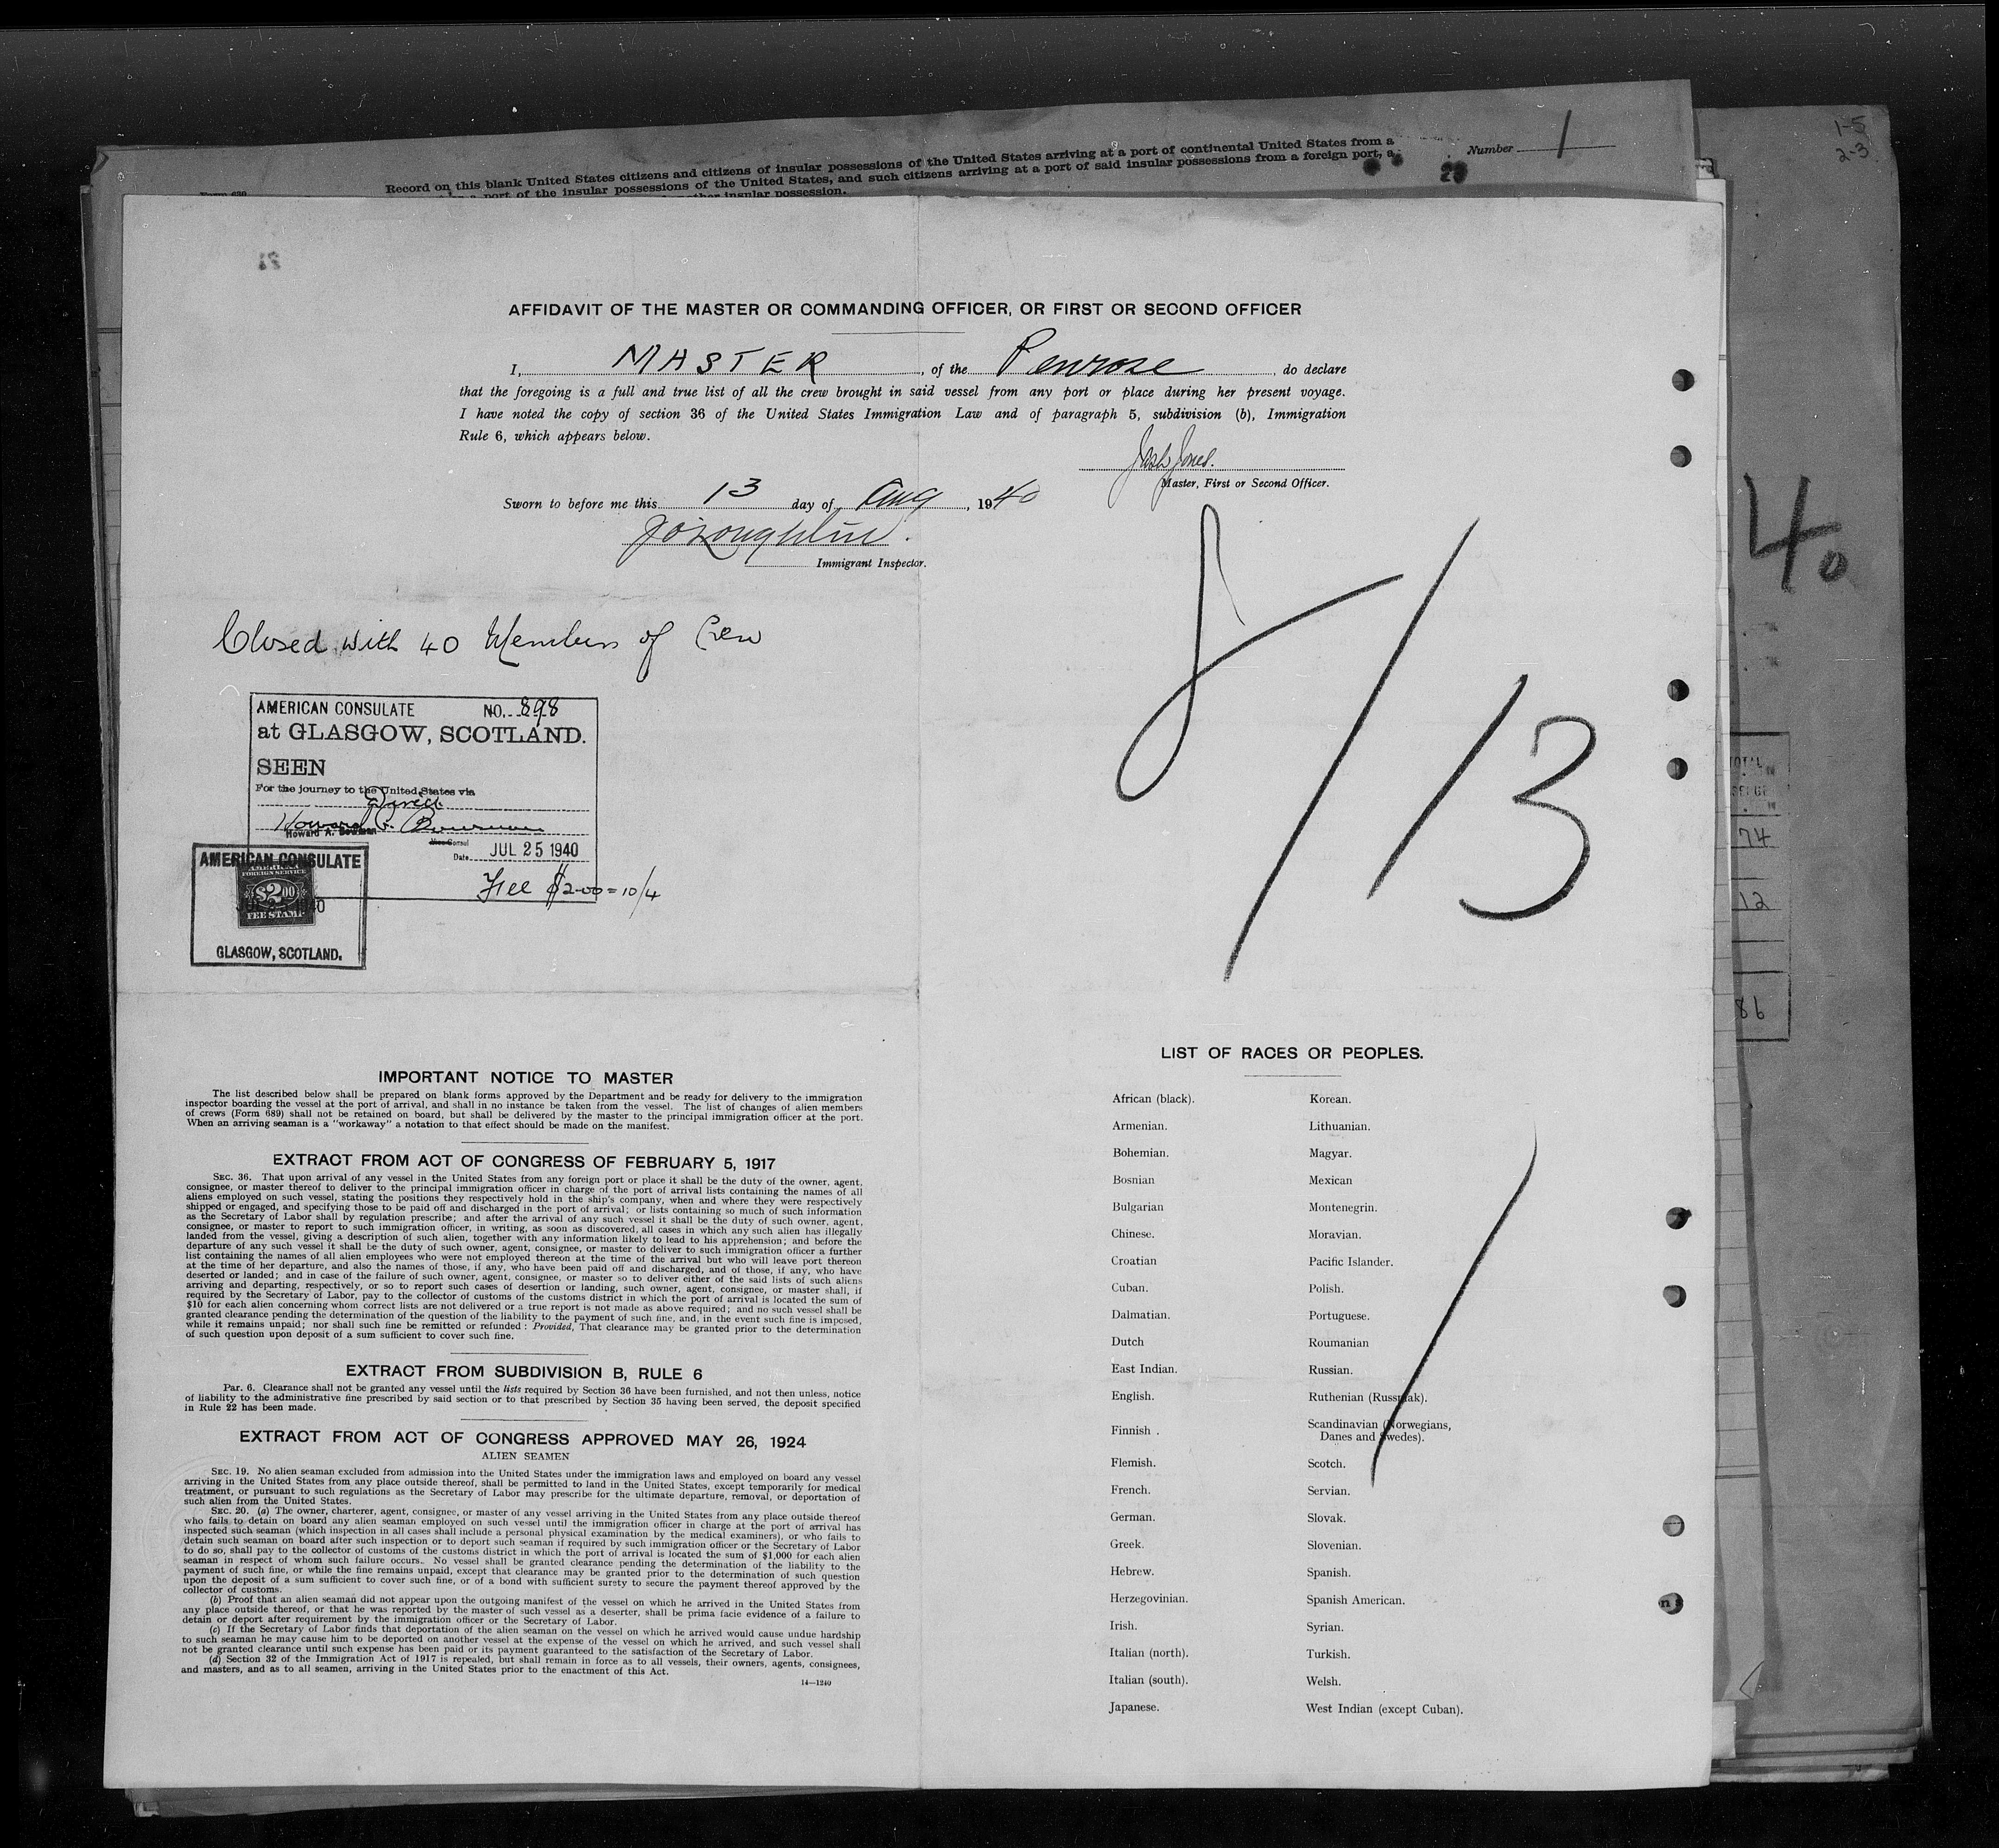 1-5
2-3
Record on this blank United States citizens and citizens of insular possessions of the United States arriving at a port of continental United States from a
port of the insular possessions of the United States, and such citizens arriving at a port of said insular possessions from a foreign port, a
insular possession.
Number 1
AFFIDAVIT OF THE MASTER OR COMMANDING OFFICER, OR FIRST OR SECOND OFFICER
I, MASTER, of the Penrose, do declare
that the foregoing is a full and true list of all the crew brought in said vessel from any port or place during her present voyage.
I have noted the copy of section 36 of the United States Immigration Law and of paragraph 5, subdivision (b), Immigration
Rule 6, which appears below.
Jones.
Master, First or Second Officer.
Sworn to before me this 13 day of Aug, 1940
Immigrant Inspector.
40
8/13
Closed with 40 Members of Crew
AMERICAN CONSULATE NO. 898
at GLASGOW, SCOTLAND.
SEEN
For the journey to the United States via
Direct
Howard A. Bowman
Howard A. Bowman
Vice Consul
Date JUL 25 1940
Fee $2.00 = 10/4
AMERICAN CONSULATE
FOREIGN SERVICE
$2.00
FEE STAMP
GLASGOW, SCOTLAND.
74
12
86
IMPORTANT NOTICE TO MASTER
The list described below shall be prepared on blank forms approved by the Department and be ready for delivery to the immigration
inspector boarding the vessel at the port of arrival, and shall in no instance be taken from the vessel. The list of changes of alien members
of crews (Form 689) shall not be retained on board, but shall be delivered by the master to the principal immigration officer at the port.
When an arriving seaman is a "workaway" a notation to that effect should be made on the manifest.
EXTRACT FROM ACT OF CONGRESS OF FEBRUARY 5, 1917
SEC. 36. That upon arrival of any vessel in the United States from any foreign port or place it shall be the duty of the owner, agent,
consignee, or master thereof to deliver to the principal immigration officer in charge of the port of arrival lists containing the names of all
aliens employed on such vessel, stating the positions they respectively hold in the ship's company, when and where they were respectively
shipped or engaged, and specifying those to be paid off and discharged in the port of arrival; or lists containing so much of such information
as the Secretary of Labor shall by regulation prescribe; and after the arrival of any such vessel it shall be the duty of such owner, agent,
consignee, or master to report to such immigration officer, in writing, as soon as discovered, all cases in which any such alien has illegally
landed from the vessel, giving a description of such alien, together with any information likely to lead to his apprehension; and before the
departure of any such vessel it shall be the duty of such owner, agent, consignee, or master to deliver to such immigration officer a further
list containing the names of all alien employees who were not employed thereon at the time of the arrival but who will leave port thereon
at the time of her departure, and also the names of those, if any, who have been paid off and discharged, and of those, if any, who have
deserted or landed; and in case of the failure of such owner, agent, consignee, or master so to deliver either of the said lists of such aliens
arriving and departing, respectively, or so to report such cases of desertion or landing, such owner, agent, consignee, or master shall, if
required by the Secretary of Labor, pay to the collector of customs of the customs district in which the port of arrival is located the sum of
$10 for each alien concerning whom correct lists are not delivered or a true report is not made as above required; and no such vessel shall be
granted clearance pending the determination of the question of the liability to the payment of such fine, and, in the event such fine is imposed,
while it remains unpaid; nor shall such fine be remitted or refunded: Provided, That clearance may be granted prior to the determination
of such question upon deposit of a sum sufficient to cover such fine.
EXTRACT FROM SUBDIVISION B, RULE 6
Par. 6. Clearance shall not be granted any vessel until the lists required by Section 36 have been furnished, and not then unless, notice
of liability to the administrative fine prescribed by said section or to that prescribed by Section 35 having been served, the deposit specified
in Rule 22 has been made.
EXTRACT FROM ACT OF CONGRESS APPROVED MAY 26, 1924
ALIEN SEAMEN
SEC. 19. No alien seaman excluded from admission into the United States under the immigration laws and employed on board any vessel
arriving in the United States from any place outside thereof, shall be permitted to land in the United States, except temporarily for medical
treatment, or pursuant to such regulations as the Secretary of Labor may prescribe for the ultimate departure, removal, or deportation of
such alien from the United States.
SEC. 20. (a) The owner, charterer, agent, consignee, or master of any vessel arriving in the United States from any place outside thereof
who fails to detain on board any alien seaman employed on such vessel until the immigration officer in charge at the port of arrival has
inspected such seaman (which inspection in all cases shall include a personal physical examination by the medical examiners), or who fails to
detain such seaman on board after such inspection or to deport such seaman if required by such immigration officer or the Secretary of Labor
to do so, shall pay to the collector of customs of the customs district in which the port of arrival is located the sum of $1,000 for each alien
seaman in respect of whom such failure occurs. No vessel shall be granted clearance pending the determination of the liability to the
payment of such fine, or while the fine remains unpaid, except that clearance may be granted prior to the determination of such question
upon the deposit of a sum sufficient to cover such fine, or of a bond with sufficient surety to secure the payment thereof approved by the
collector of customs.
(b) Proof that an alien seaman did not appear upon the outgoing manifest of the vessel on which he arrived in the United States from
any place outside thereof, or that he was reported by the master of such vessel as a deserter, shall be prima facie evidence of a failure to
detain or deport after requirement by the immigration officer or the Secretary of Labor.
(c) If the Secretary of Labor finds that deportation of the alien seaman on the vessel on which he arrived would cause undue hardship
to such seaman he may cause him to be deported on another vessel at the expense of the vessel on which he arrived, and such vessel shall
not be granted clearance until such expense has been paid or its payment guaranteed to the satisfaction of the Secretary of Labor.
(d) Section 32 of the Immigration Act of 1917 is repealed, but shall remain in force as to all vessels, their owners, agents, consignees,
and masters, and as to all seamen, arriving in the United States prior to the enactment of this Act.
14—1240
LIST OF RACES OR PEOPLES.
African (black).
Armenian.
Bohemian.
Bosnian
Bulgarian
Chinese.
Croatian
Cuban.
Dalmatian.
Dutch
East Indian.
English.
Finnish.
Flemish.
French.
German.
Greek.
Hebrew.
Herzegovinian.
Irish.
Italian (north).
Italian (south).
Japanese.
Korean.
Lithuanian.
Magyar.
Mexican
Montenegrin.
Moravian.
Pacific Islander.
Polish.
Portuguese.
Roumanian
Russian.
Ruthenian (Russniak).
Scandinavian (Norwegians,
Danes and Swedes).
Scotch.
Servian.
Slovak.
Slovenian.
Spanish.
Spanish American.
Syrian.
Turkish.
Welsh.
West Indian (except Cuban).